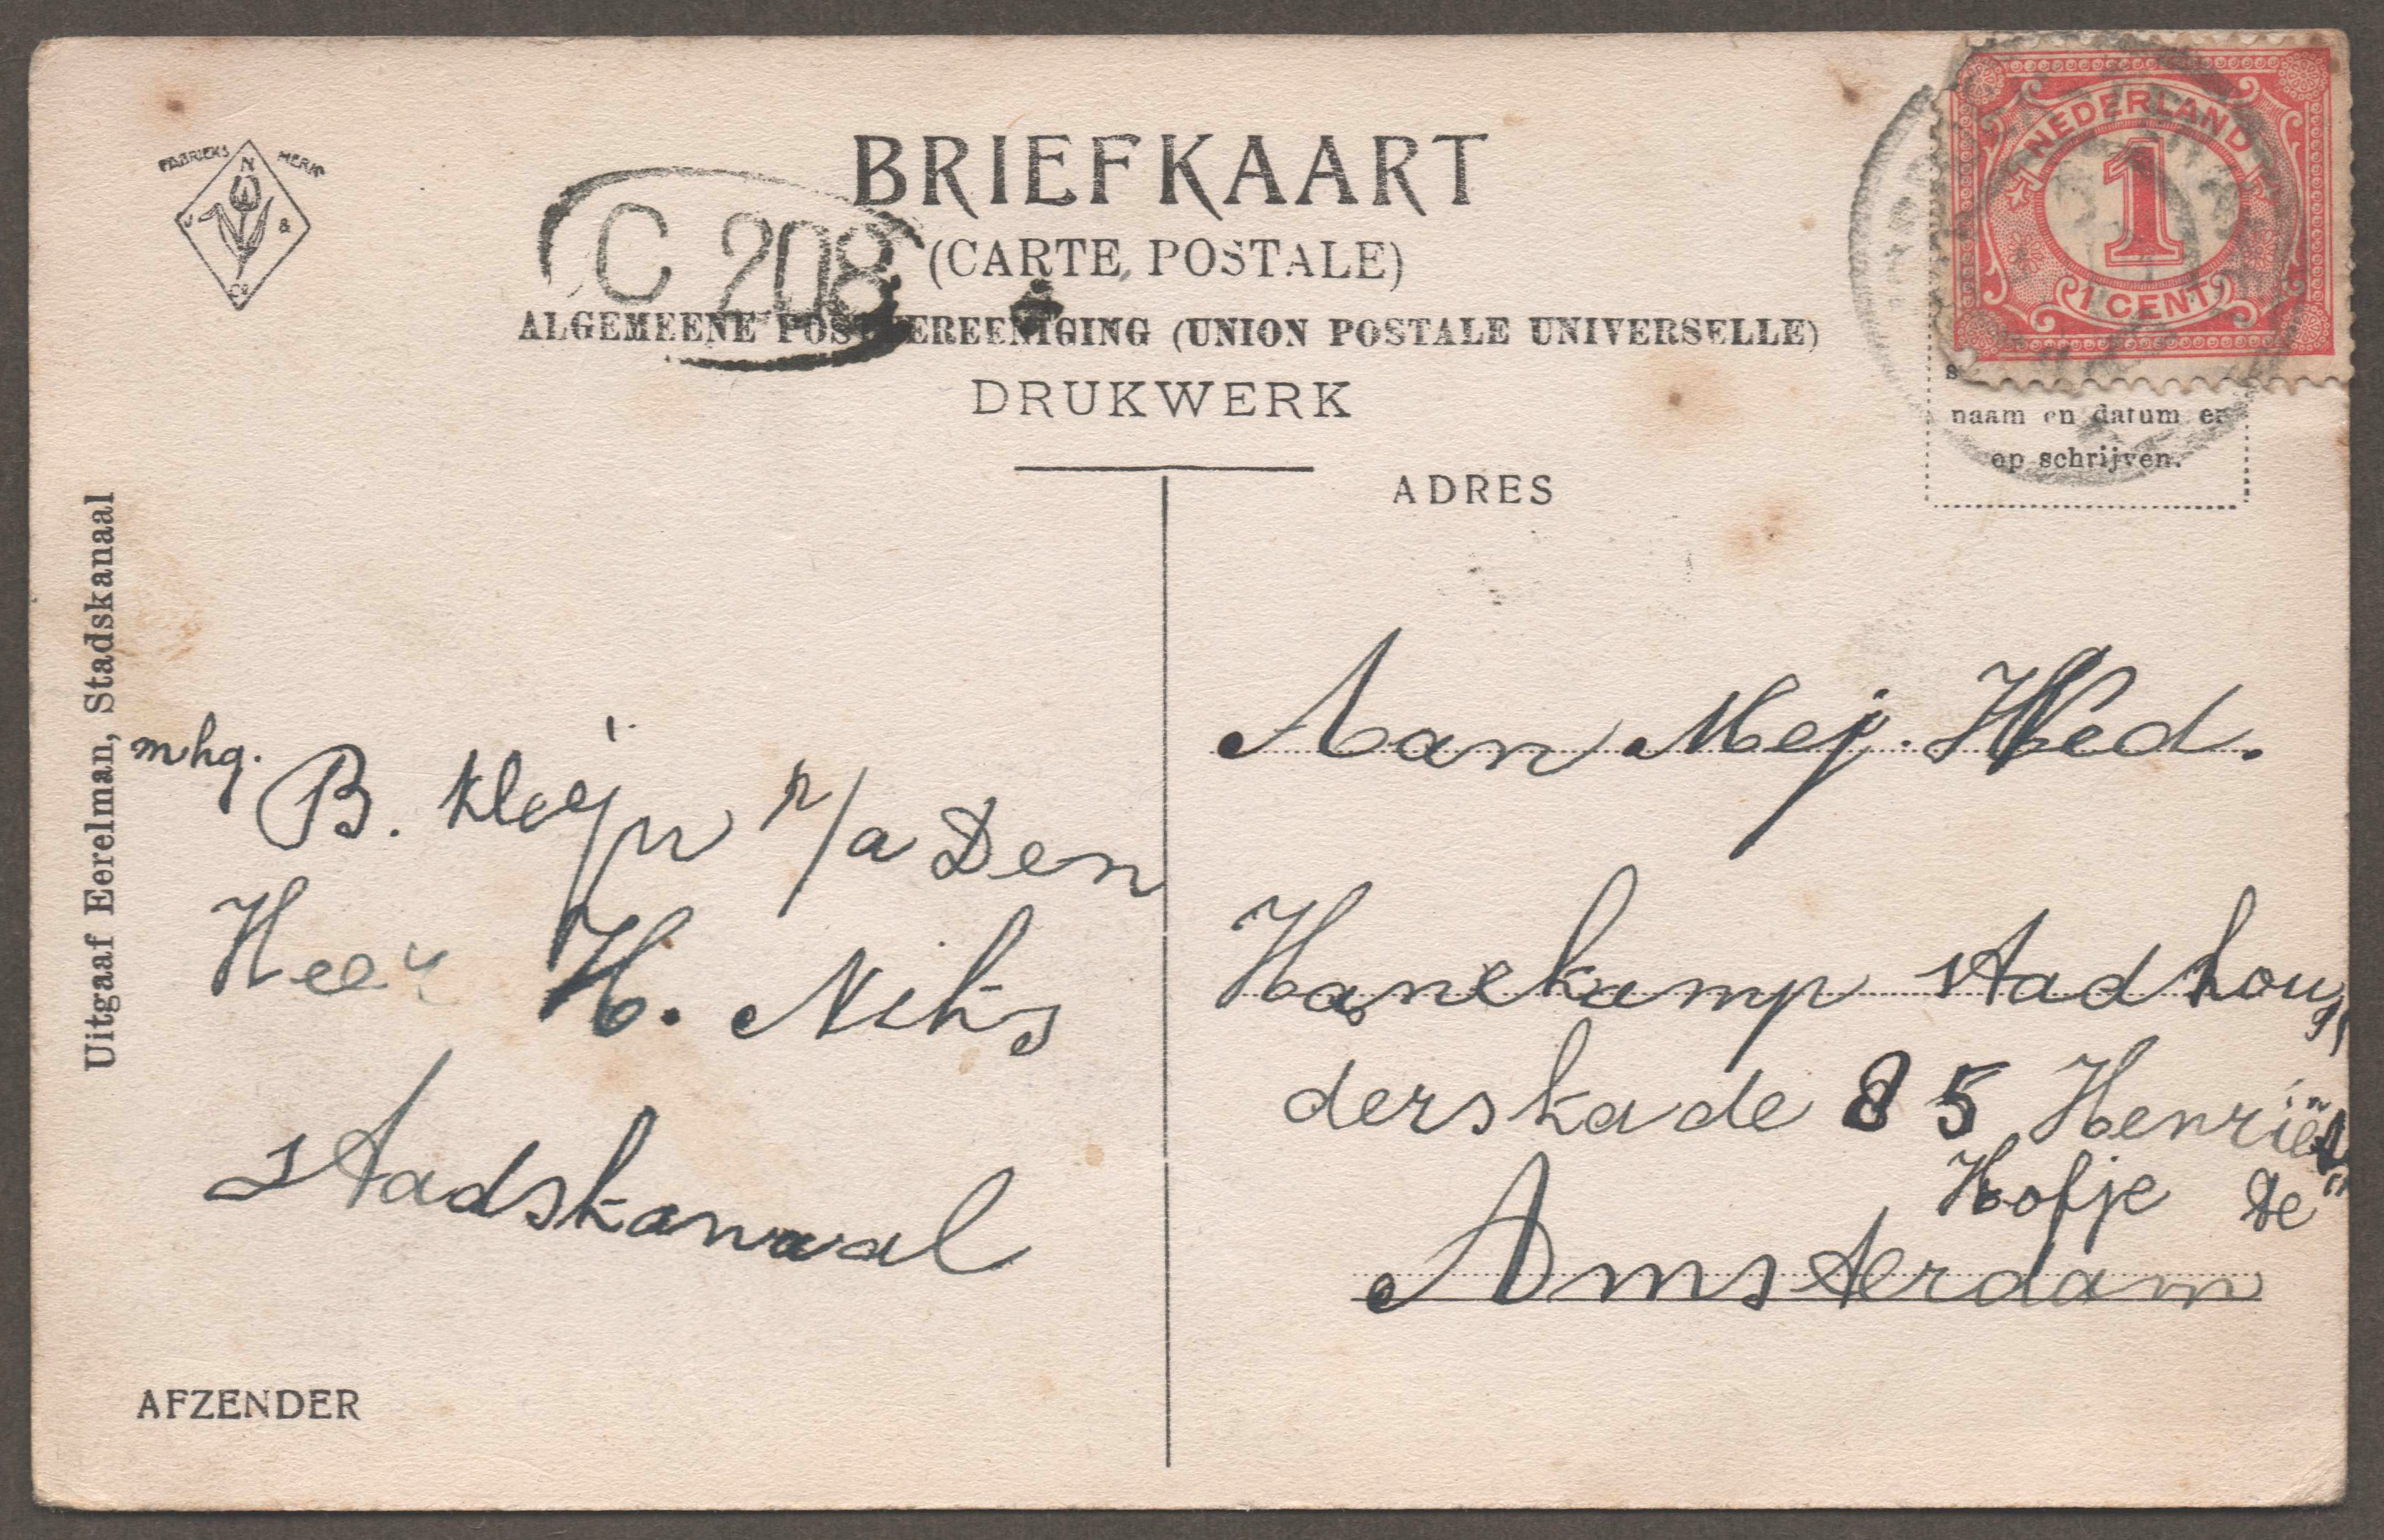 FABRIEKS MERK
N
J & Co
C 208
BRIEFKAART
(CARTE POSTALE)
ALGEMEENE POSTVEREENIGING (UNION POSTALE UNIVERSELLE)
DRUKWERK
NEDERLAND
1
1 CENT
naam en datum er
op schrijven.
ADRES
Uitgaaf Eerelman, Stadskanaal
mhg.
B. Kleijn p/a Den
Heer H. Niks
Stadskanaal
AFZENDER
Aan Mej. Wed.
Hanekamp stadhou„
derskade 85 Henriët
Hofje te"
Amsterdam